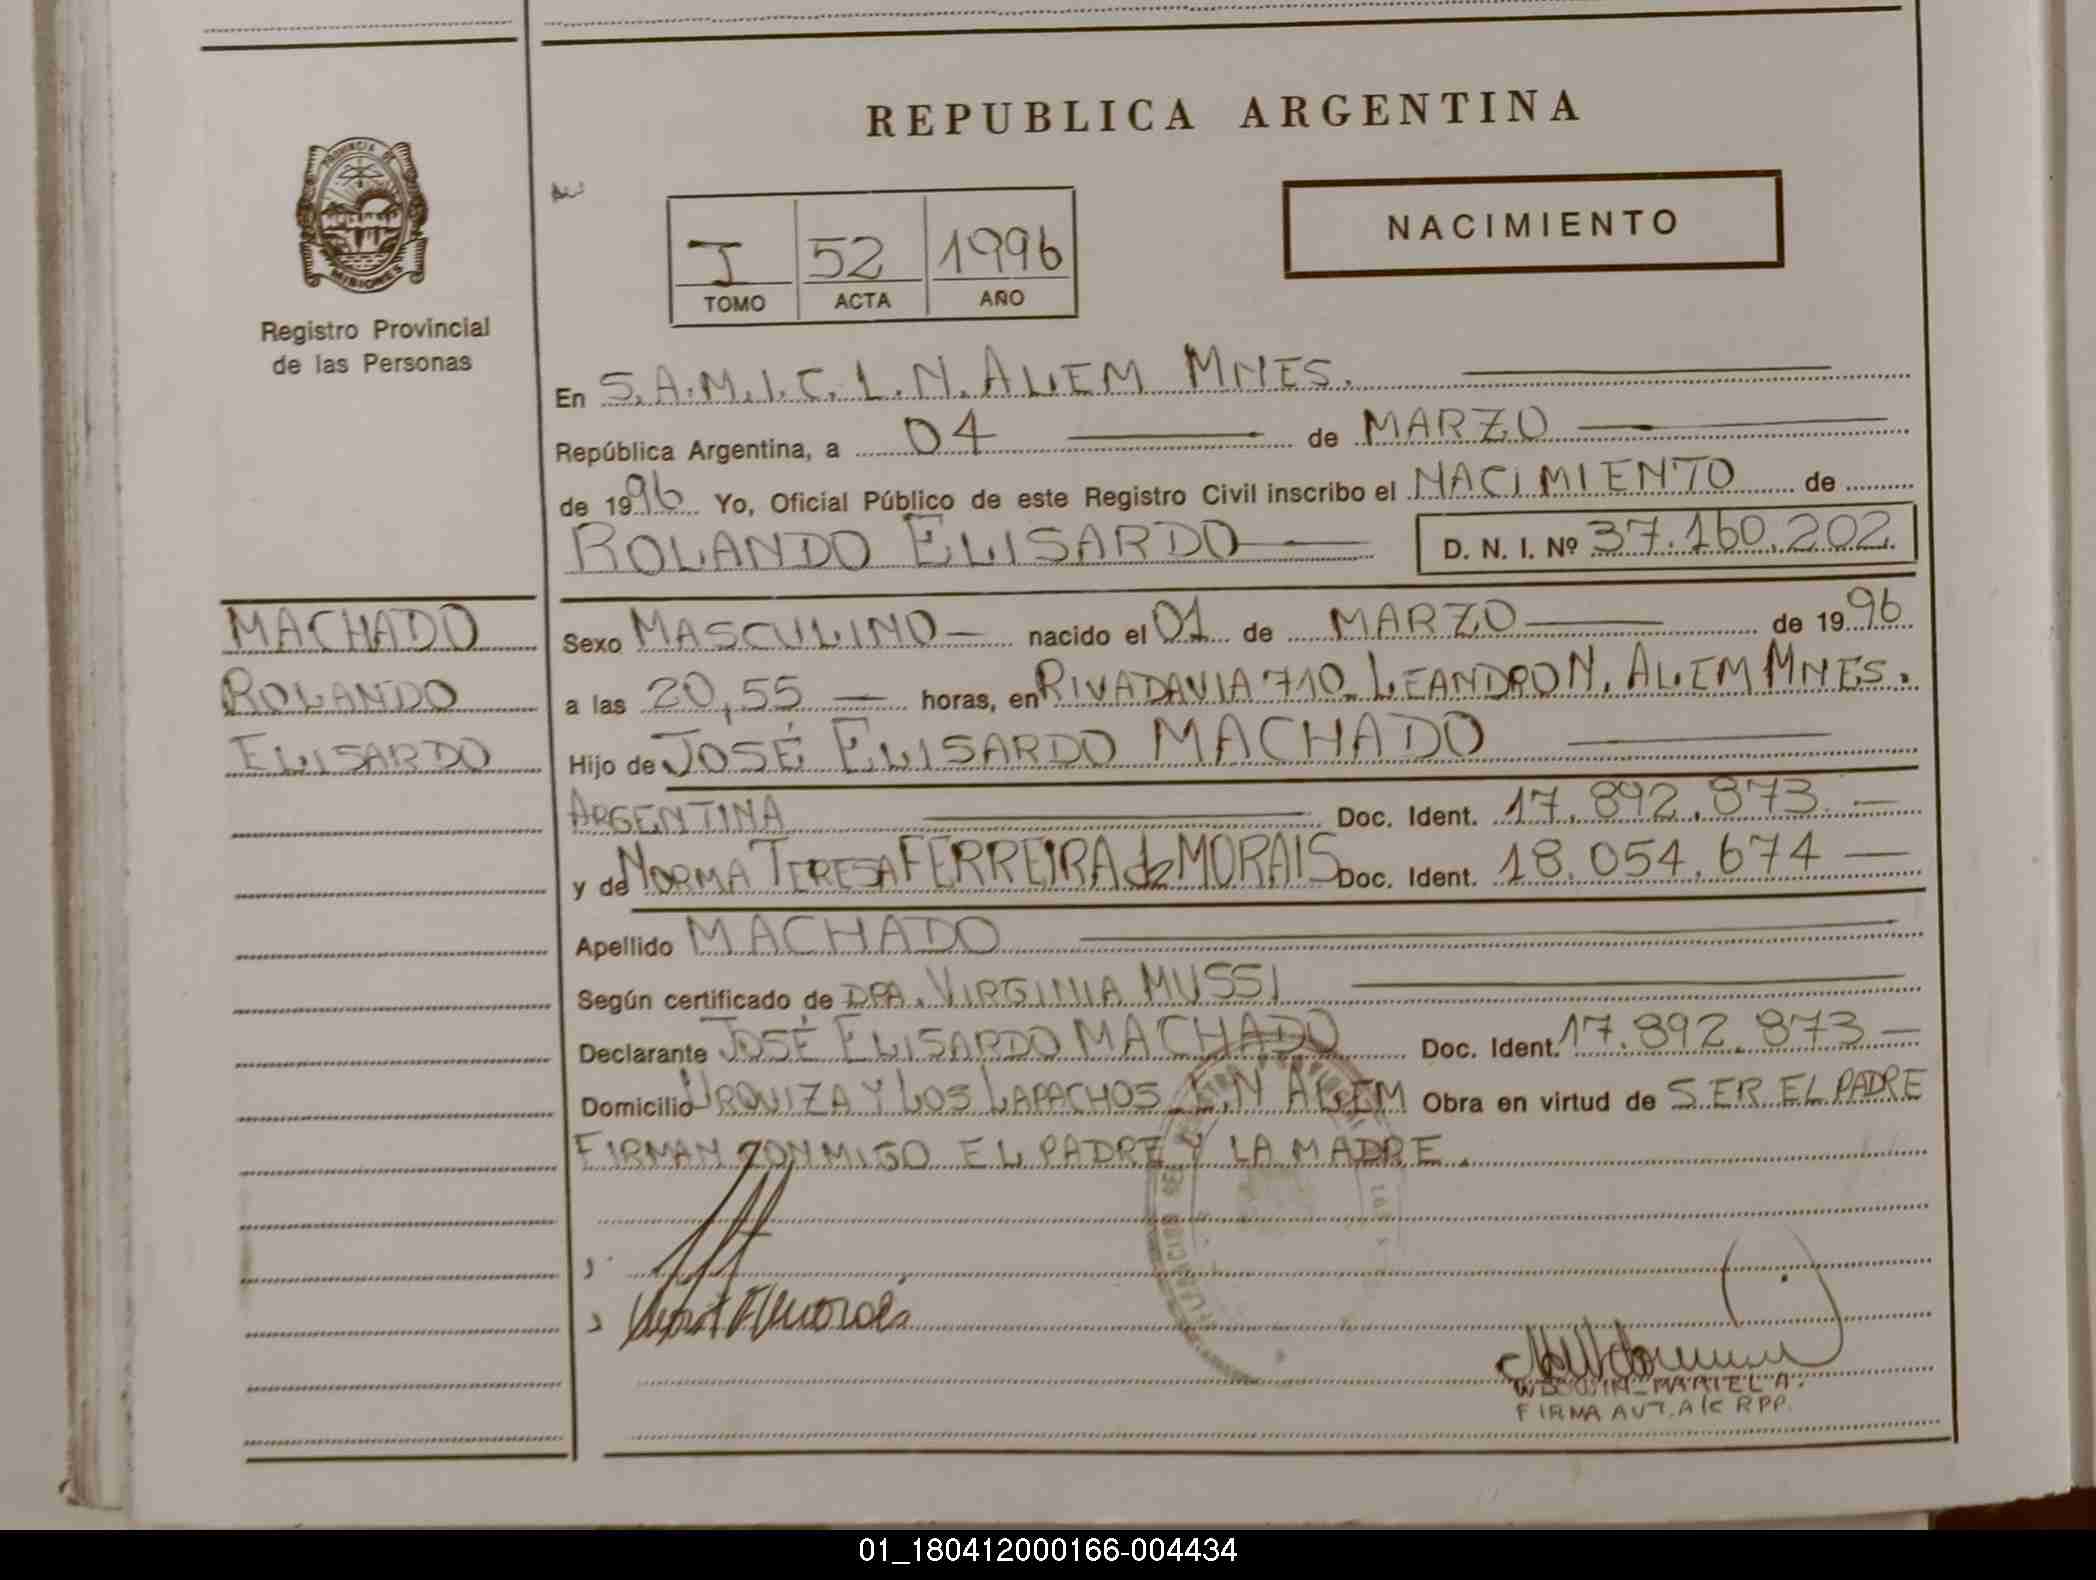 REPUBLICA ARGENTINA
PROVINCIA DE
MISIONES
Registro Provincial
de las Personas
NACIMIENTO
I 52 1996
TOMO ACTA AÑO
En S.A.M.I.C. L.N. ALEM MNES.
República Argentina, a 04 de MARZO
de 1996 Yo, Oficial Público de este Registro Civil inscribo el NACIMIENTO de
ROLANDO ELISARDO D. N. I. Nº 37.160.202
MACHADO
ROLANDO
ELISARDO
Sexo MASCULINO nacido el 01 de MARZO de 1996
a las 20,55 horas, en RIVADAVIA 710 LEANDRO N. ALEM MNES.
Hijo de JOSÉ ELISARDO MACHADO
ARGENTINA Doc. Ident. 17.892.873
y de NORMA TERESA FERREIRA de MORAIS Doc. Ident. 18.054.674
Apellido MACHADO
Según certificado de DRA. VIRGINIA MUSSI
Declarante JOSÉ ELISARDO MACHADO Doc. Ident. 17.892.873
Domicilio URQUIZA Y LOS LAPACHOS L.N ALEM Obra en virtud de SER EL PADRE
FIRMAN CONMIGO EL PADRE Y LA MADRE.
MARIEL A.
FIRMA AUT. A/C RPP.
01_180412000166-004434